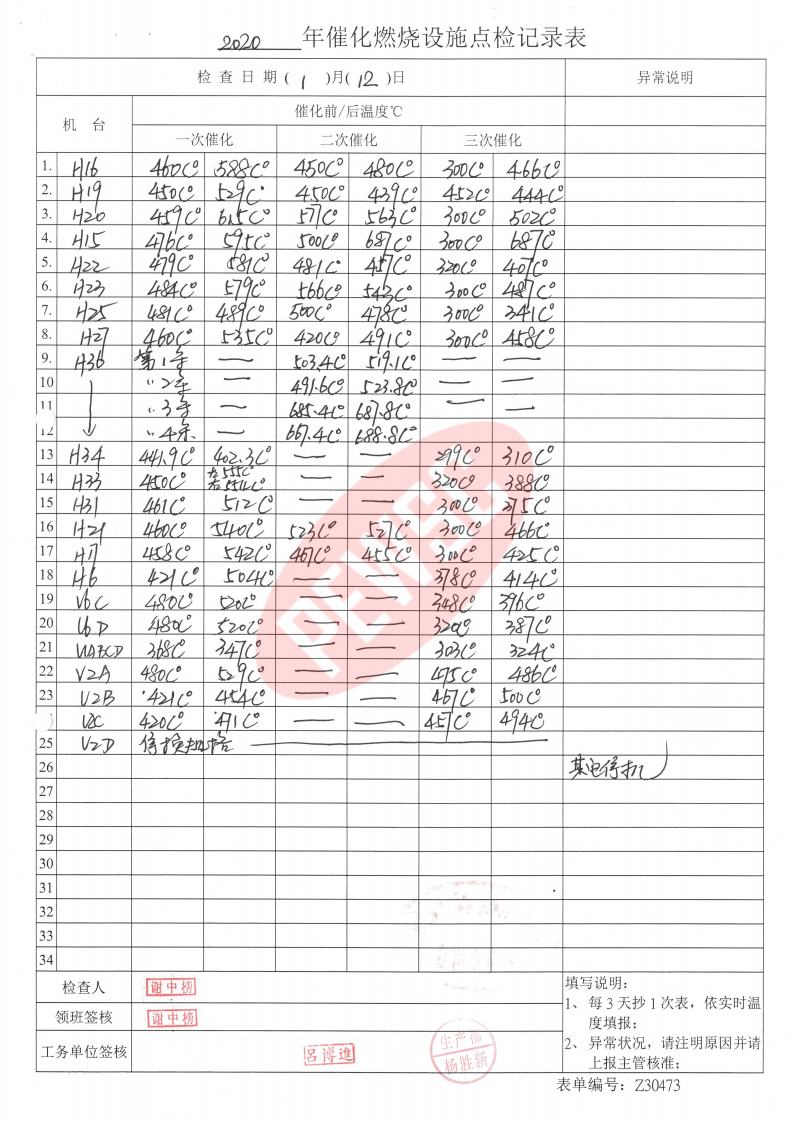 2020 年催化燃烧设施点检记录表
检查日期( 1 )月( 12 )日 异常说明
机 台 催化前/后温度℃
一次催化 二次催化 三次催化
1. H16 460C° 588C° 450C° 480C° 300C° 466C°
2. H19 450C° 529C° 450C° 439C° 452C° 444C°
3. H20 459C° 615C° 577C° 563C° 300C° 502C°
4. H15 476C° 595C° 500C° 687C° 300C° 687C°
5. H22 479C° 581C° 481C° 457C° 320C° 407C°
6. H23 484C° 579C° 566C° 543C° 300C° 487C°
7. H25 481C° 489C° 500C° 478C° 300C° 341C°
8. H27 460C° 535C° 420C° 491C° 300C° 458C°
9. H36 第1年 — 503.4C° 519.1C° — —
10 〃2年 — 491.6C° 523.8C° — —
11 〃3年 — 685.4C° 687.8C° — —
12 〃4 — 667.4C° 688.8C°
13 H34 441.9C° 402.3C° — — 299C° 310C°
14 H33 450C° 左555C° — — 320C° 388C°
右551C°
15 H31 461C° 512C° — — 300C° 315C°
16 H21 460C° 540C° 523C° 527C° 300C° 466C°
17 H17 458C° 542C° 467C° 455C° 300C° 425C°
18 H6 421C° 504C° — — 378C° 414C°
19 V6C 480C° 520C° — — 348C° 396C°
20 V6D 480C° 520C° — — 320C° 387C°
21 V1ABCD 368C° 347C° — — 303C° 324C°
22 V2A 480C° 529C° — — 475C° 486C°
23 V2B 421C° 454C° — — 467C° 500C°
V2C 420C° 471C° — — 457C° 494C°
25 V2D 停
26 停机
27
28
29
30
31
32
33
34
PEWSC
检查人 谢中榜
领班签核 谢中榜
工务单位签核 吕博進 生产部 杨胜新
填写说明:
1、 每 3 天抄 1 次表，依实时温
度填报;
2、 异常状况，请注明原因并请
上报主管核准;
表单编号: Z30473